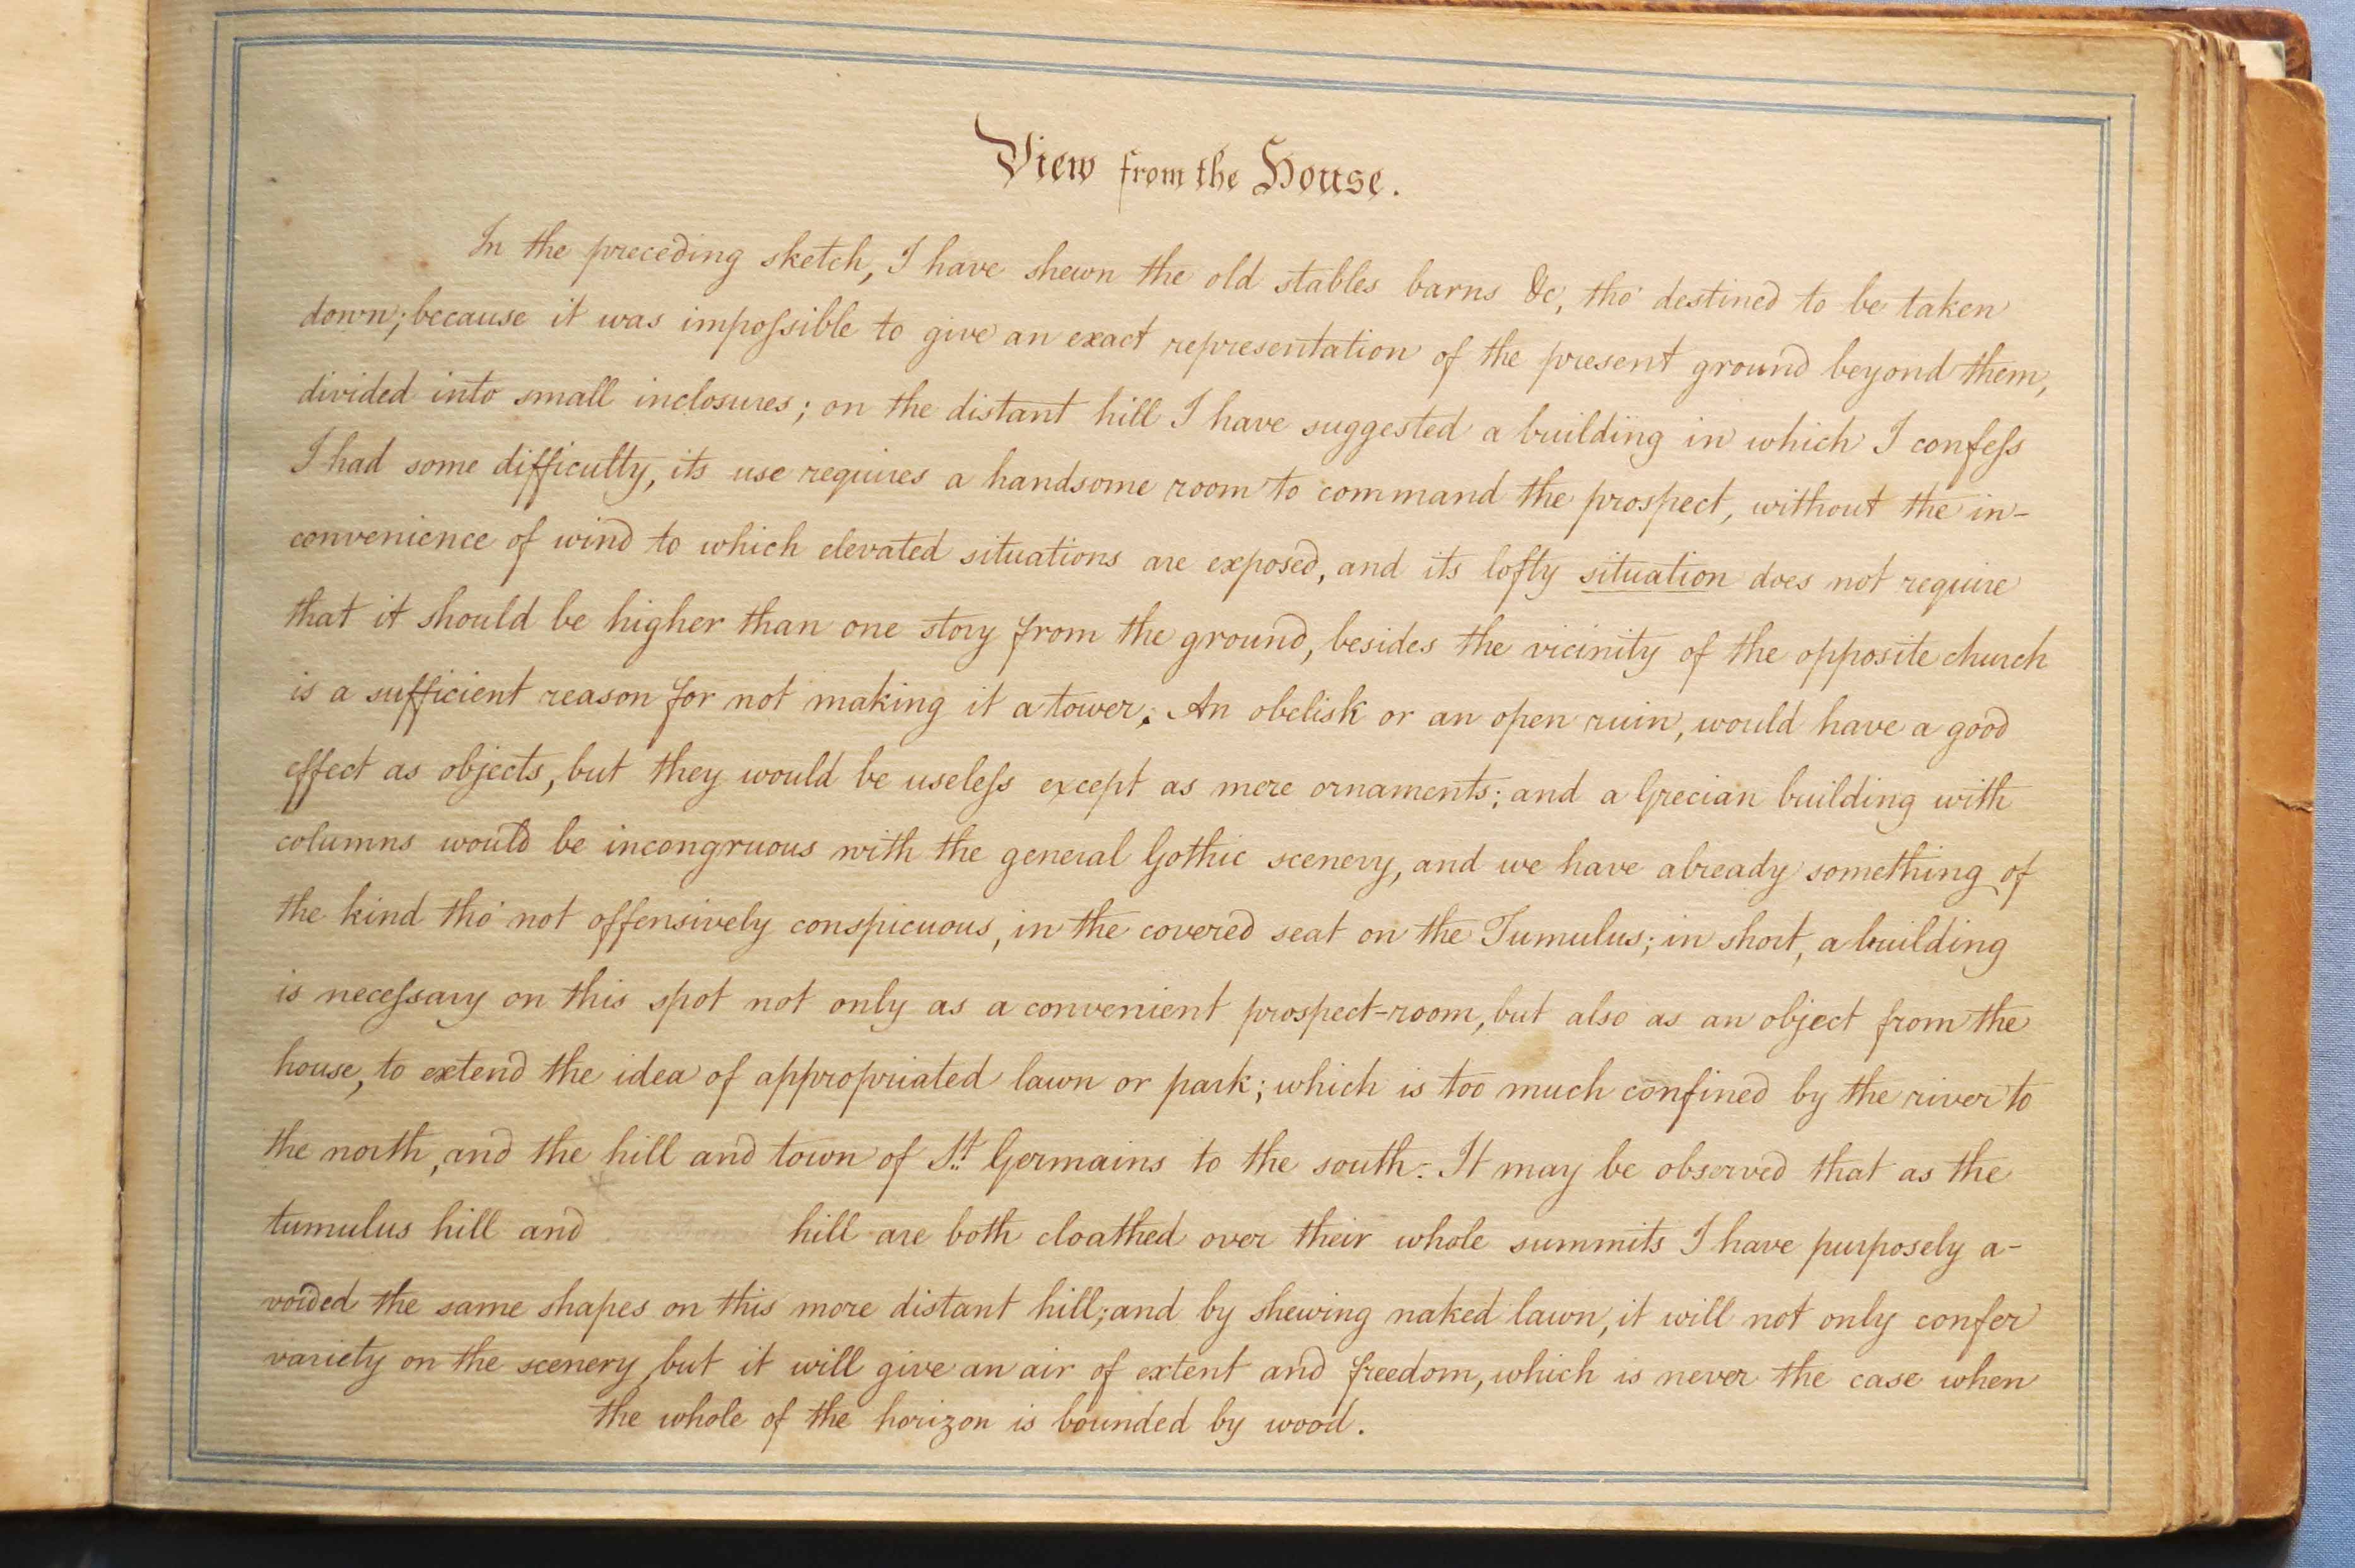 View from the House.
In the preceding sketch, I have shewn the old stables barns &c, tho' destined to be taken
down; because it was impoſsible to give an exact representation of the present ground beyond them,
divided into small inclosures; on the distant hill I have suggested a building in which I confeſs
I had some difficulty, its use requires a handsome room to command the prospect, without the in-
convenience of wind to which elevated situations are exposed, and its lofty situation does not require
that it should be higher than one story from the ground, besides the vicinity of the opposite church
is a sufficient reason for not making it a tower. An obelisk or an open ruin, would have a good
effect as objects, but they would be useleſs except as mere ornaments; and a Grecian building with
columns would be incongruous with the general Gothic scenery, and we have already something of
the kind tho' not offensively conspicuous, in the covered seat on the Tumulus; in short, a building
is neceſsary on this spot not only as a convenient prospect-room, but also as an object from the
house, to extend the idea of appropriated lawn or park; which is too much confined by the river to
the north, and the hill and town of St. Germains to the south. It may be observed that as the
tumulus hill and hill are both cloathed over their whole summits I have purposely a-
voided the same shapes on this more distant hill; and by shewing naked lawn, it will not only confer
variety on the scenery, but it will give an air of extent and freedom, which is never the case when
the whole of the horizon is bounded by wood.